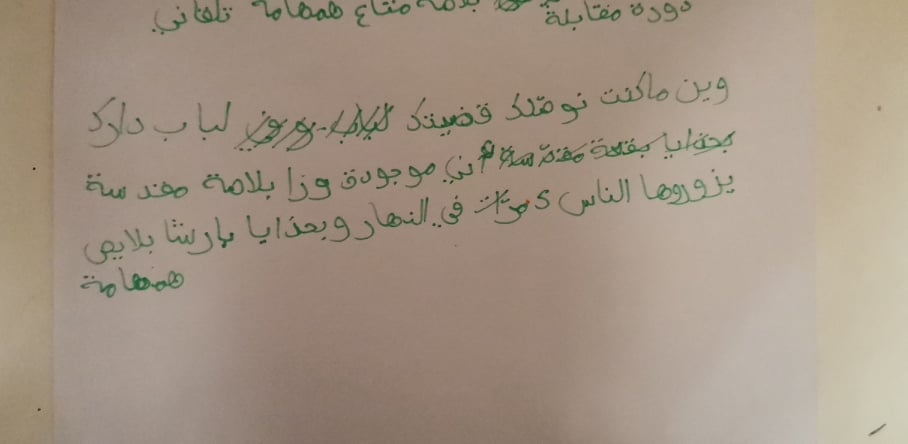 دورة مقابلة بلاصة متاع همهامة تلقاني
وين ماكنت نوصلك قضيتك لباب دارك
أني موجودة وزا بلاصة مقدسة
يزوروها الناس 5 مرات في النهار وبحذايا بارشا بلايص
همهامة